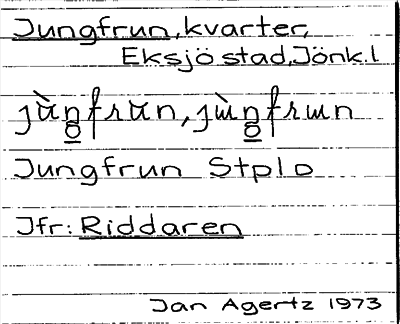 Jungfrun, kvarter,
Eksjö stad, Jönk. l
Jungfrun Stplo
Jfr: Riddaren
Jan Agertz 1973